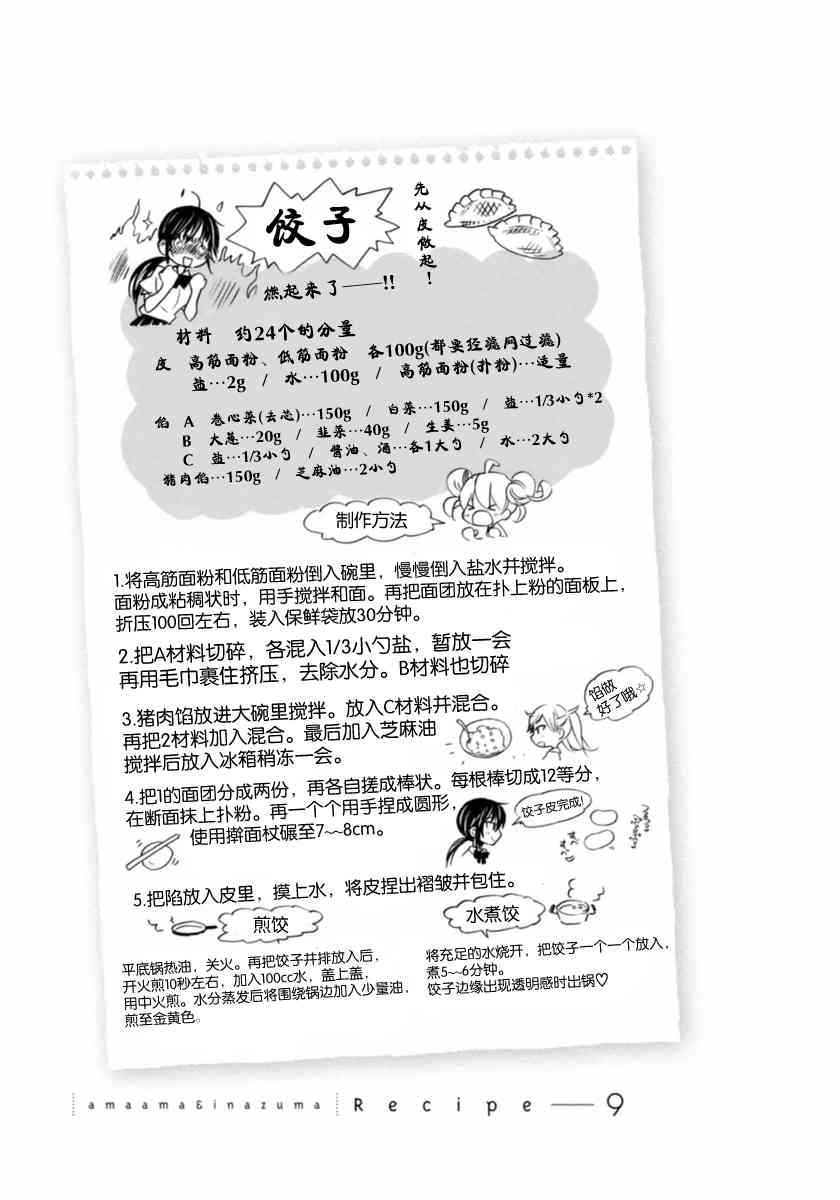 饺子
先从皮做起！
燃起来了——!!
材料 约24个的分量
皮 高筋面粉、低筋面粉 各100g(都要经滤网过滤)
盐…2g / 水…100g / 高筋面粉(扑粉)…适量
馅 A 卷心菜(去芯)…150g / 白菜…150g / 盐…1/3小勺*2
B 大葱…20g / 韭菜…40g / 生姜…5g
C 盐…1/3小勺 / 酱油、酒…各1大勺 / 水…2大勺
猪肉馅…150g / 芝麻油…2小勺
制作方法
1.将高筋面粉和低筋面粉倒入碗里，慢慢倒入盐水并搅拌。
面粉成粘稠状时，用手搅拌和面。再把面团放在扑上粉的面板上，
折压100回左右，装入保鲜袋放30分钟。
2.把A材料切碎，各混入1/3小勺盐，暂放一会
再用毛巾裹住挤压，去除水分。B材料也切碎
3.猪肉馅放进大碗里搅拌。放入C材料并混合。
再把2材料加入混合。最后加入芝麻油
搅拌后放入冰箱稍冻一会。
馅做
好了哦☆
4.把1的面团分成两份，再各自搓成棒状。每根棒切成12等分，
在断面抹上扑粉。再一个个用手捏成圆形，
使用擀面杖碾至7~~8cm。
饺子皮完成!
5.把陷放入皮里，摸上水，将皮捏出褶皱并包住。
煎饺
平底锅热油，关火。再把饺子并排放入后，
开火煎10秒左右，加入100cc水，盖上盖，
用中火煎。水分蒸发后将围绕锅边加入少量油，
煎至金黄色。
水煮饺
将充足的水烧开，把饺子一个一个放入，
煮5~~6分钟。
饺子边缘出现透明感时出锅♡
amaama&inazuma Recipe — 9